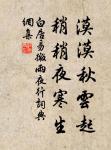 漠漠秋雲起
稍稍夜寒生
白居易微雨夜行詞典
網集